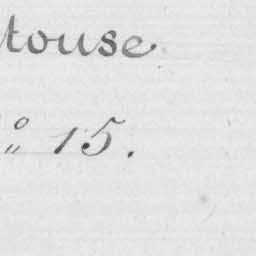 touse
o 15.